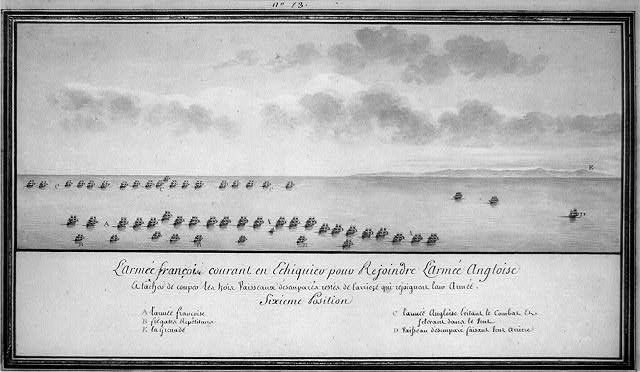 n° 13.
E
C C
D
A A A
B B B
L'armée françoise courant en Echiquier pour Rejoindre L'armée Angloise
tacher de couper les trois Vaisseaux desemparés restés de l'arriere qui rejoignent leur Armée.
Sixieme Position
A l'armée francoise
B frégates Repétiteurs
E la Grenade
C l'armée Angloise Evitant le Combat Et
dans le Vent
D Vaisseau desemparé faisant Vent Arriere